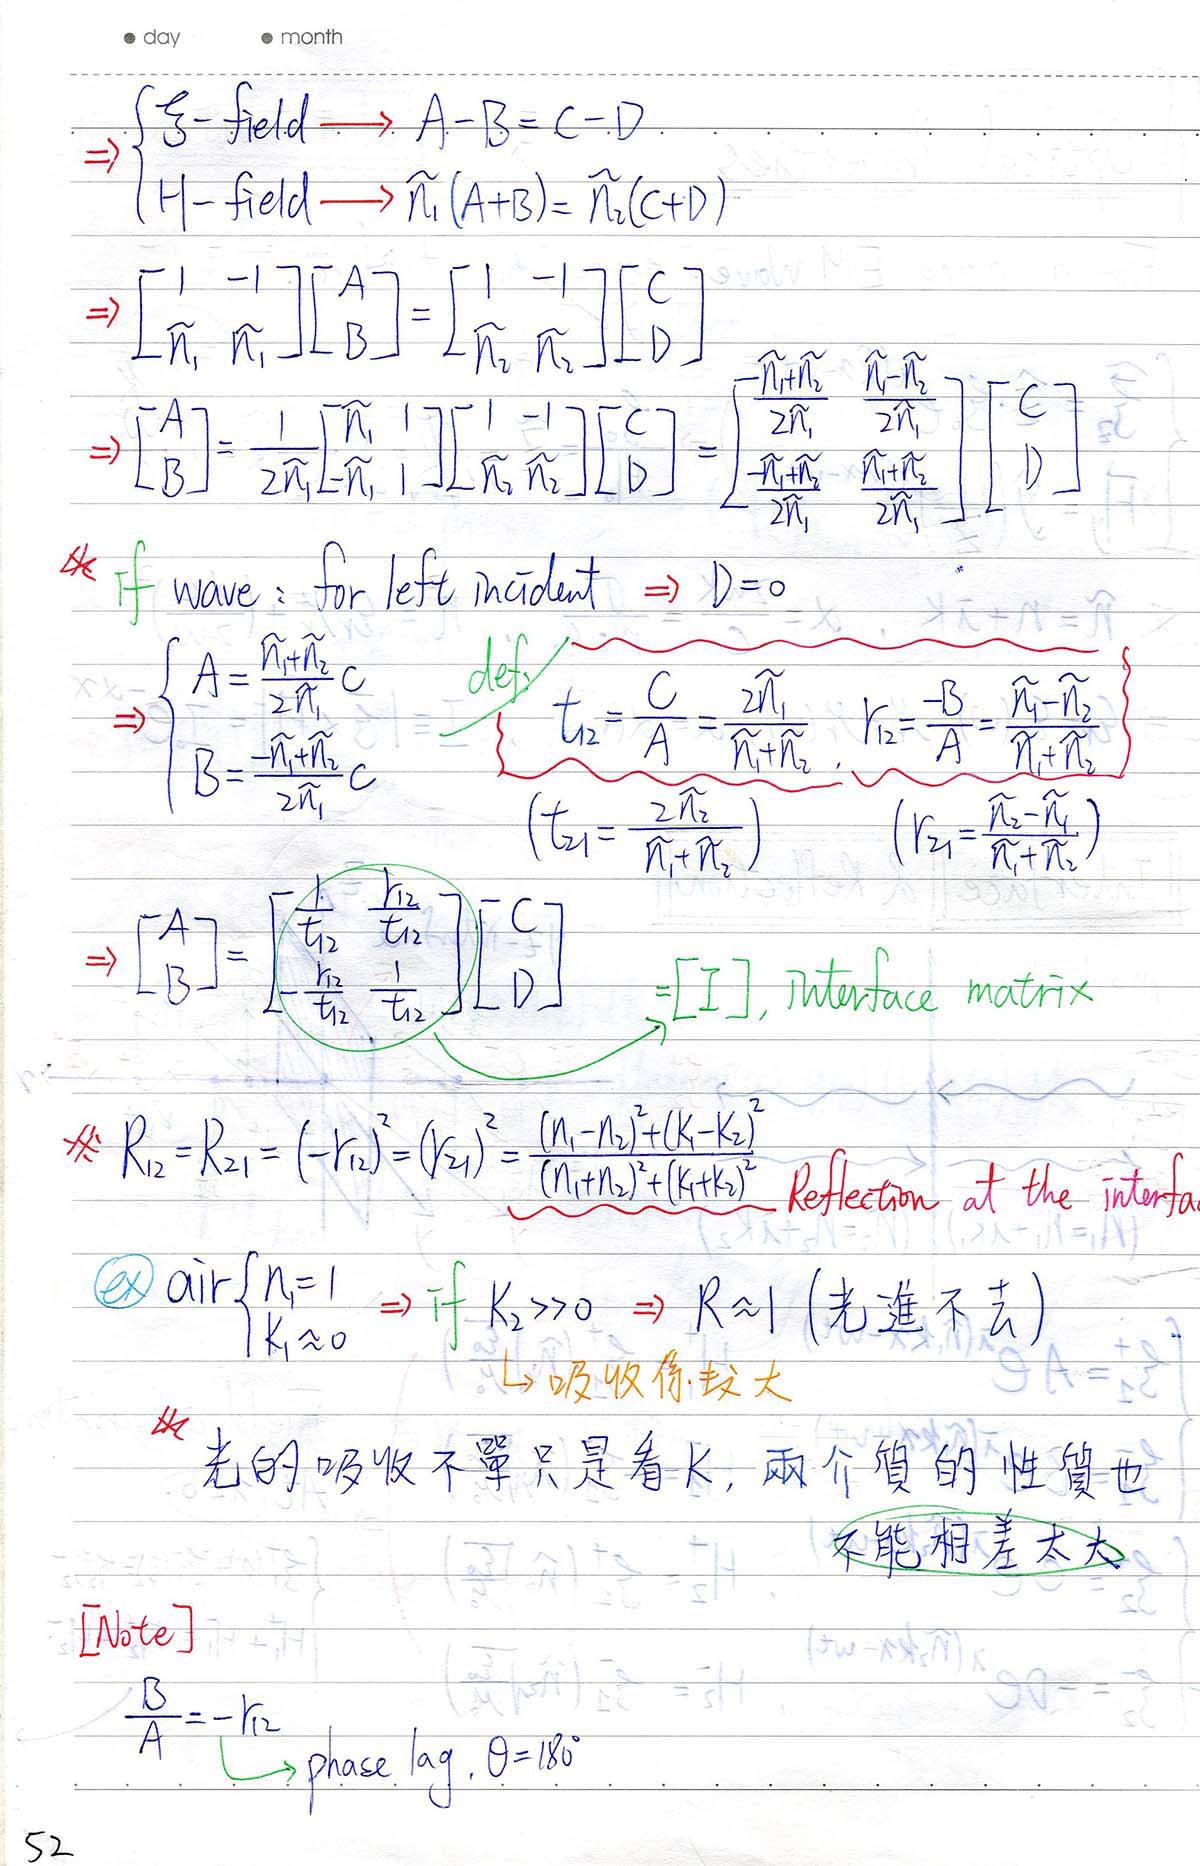 ● day ● month
⇒ { ξ-field → A-B = C-D
H-field → ñ₁(A+B) = ñ₂(C+D)
⇒ [1 -1; ñ₁ ñ₁][A; B] = [1 -1; ñ₂ ñ₂][C; D]
⇒ [A; B] = 1/2ñ₁ [ñ₁ 1; -ñ₁ 1][1 -1; ñ₂ ñ₂][C; D] = [ñ₁+ñ₂/2ñ₁ ñ₁-ñ₂/2ñ₁; -ñ₁+ñ₂/2ñ₁ ñ₁+ñ₂/2ñ₁][C; D]
※ if wave: for left incident ⇒ D=0
⇒ { A = ñ₁+ñ₂/2ñ₁ C
B = -ñ₁+ñ₂/2ñ₁ C
def: t₁₂ = C/A = 2ñ₁/ñ₁+ñ₂, r₁₂ = -B/A = ñ₁-ñ₂/ñ₁+ñ₂
(t₂₁ = 2ñ₂/ñ₁+ñ₂) (r₂₁ = ñ₂-ñ₁/ñ₁+ñ₂)
⇒ [A; B] = [1/t₁₂ r₁₂/t₁₂; -r₁₂/t₁₂ 1/t₁₂][C; D]
=[I], interface matrix
※ R₁₂ = R₂₁ = (-r₁₂)² = (r₂₁)² = (n₁-n₂)²+(K₁-K₂)²/(n₁+n₂)²+(K₁+K₂)² Reflection at the interfa
ex air { n₁=1 K₁≈0 ⇒ if K₂>>0 ⇒ R≈1 (光進不去)
↳ 吸收係較大
※ 光的吸收不單只是看K, 兩介質的性質也
不能相差太大
[Note]
B/A = -r₁₂
→ phase lag, θ=180°
52